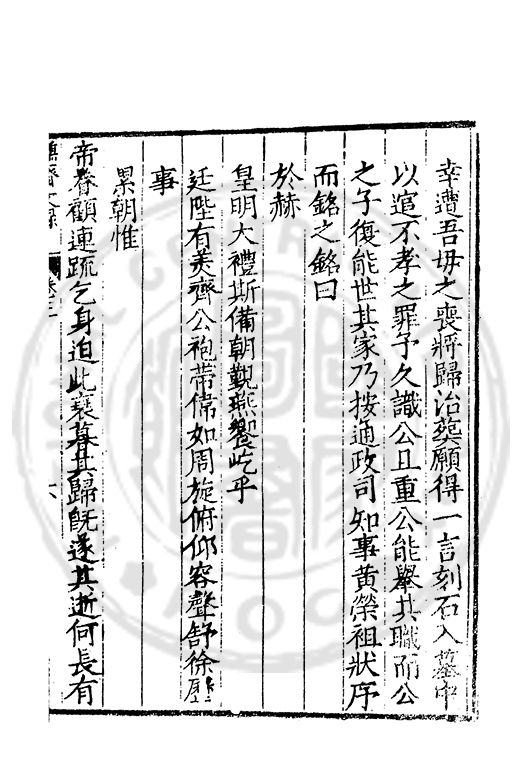 幸遭吾母之喪將歸治葬願得一言刻石入墓中
以逭不孝之罪予久識公且重公能舉其職而公
之子復能世其家乃按通政司知事黃榮祖狀序
而銘之銘曰
於赫
皇明大禮斯備朝覲燕饗屹乎
廷陛有美齊公袍帶偹如周旋俯仰容聲舒徐歷
事
累朝惟
帝眷顧連疏乞身迫此衰暮其歸旣遂其逝何長有